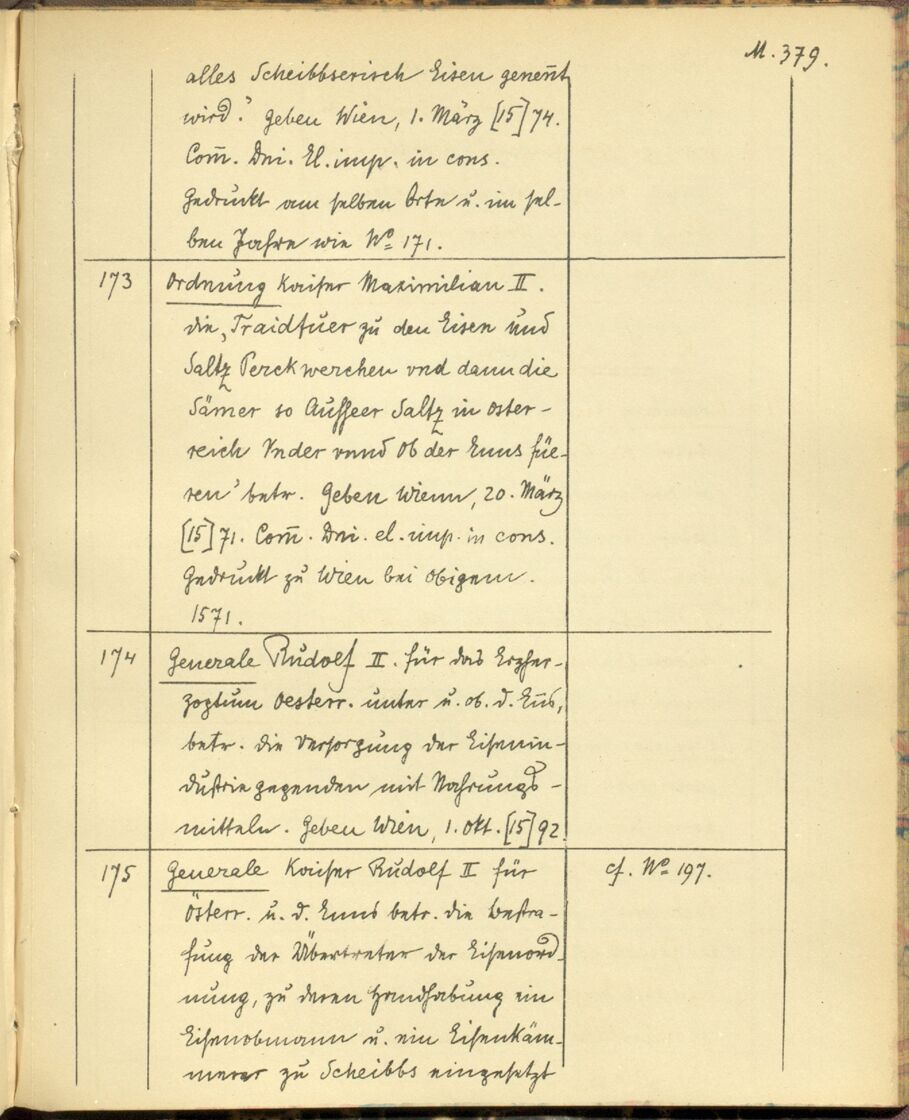 M. 379.
alles Scheibbserisch Eisen genent̄
wird." Geben Wien, 1. März [15]74.
Com̄. Dni. El. imp. in cons.
Gedruckt am selben Orte u. im sel-
ben Jahre wie No 171.
173 Ordnung Kaiser Maximilian II.
die „Traidfuer zu den Eisen und
Saltz Perckwerchen vnd dann die
Sämer so Ausseer Saltz in oster-
reich Vnder vnnd Ob der Enns füe-
ren" betr. Geben Wienn, 20. März
[15]71. Com̄. Dni. el. imp. in cons.
Gedruckt zu Wien bei obigem.
1571.
174 Generale Rudolf II. für das Erzher-
zogtum Oesterr. unter u. ob. d. Eñs,
betr. die Versorgung der Eisenin-
dustriegegenden mit Nahrungs-
mitteln. Geben Wien, 1. Okt. [15]92.
175 Generale Kaiser Rudolf II für cf. No 197.
Österr. u. d. Enns betr. die Bestra-
fung der Übertreter der Eisenord-
nung, zu deren Handhabung ein
Eisenobmann u. ein Eisenkäm-
merer zu Scheibbs eingesetzt